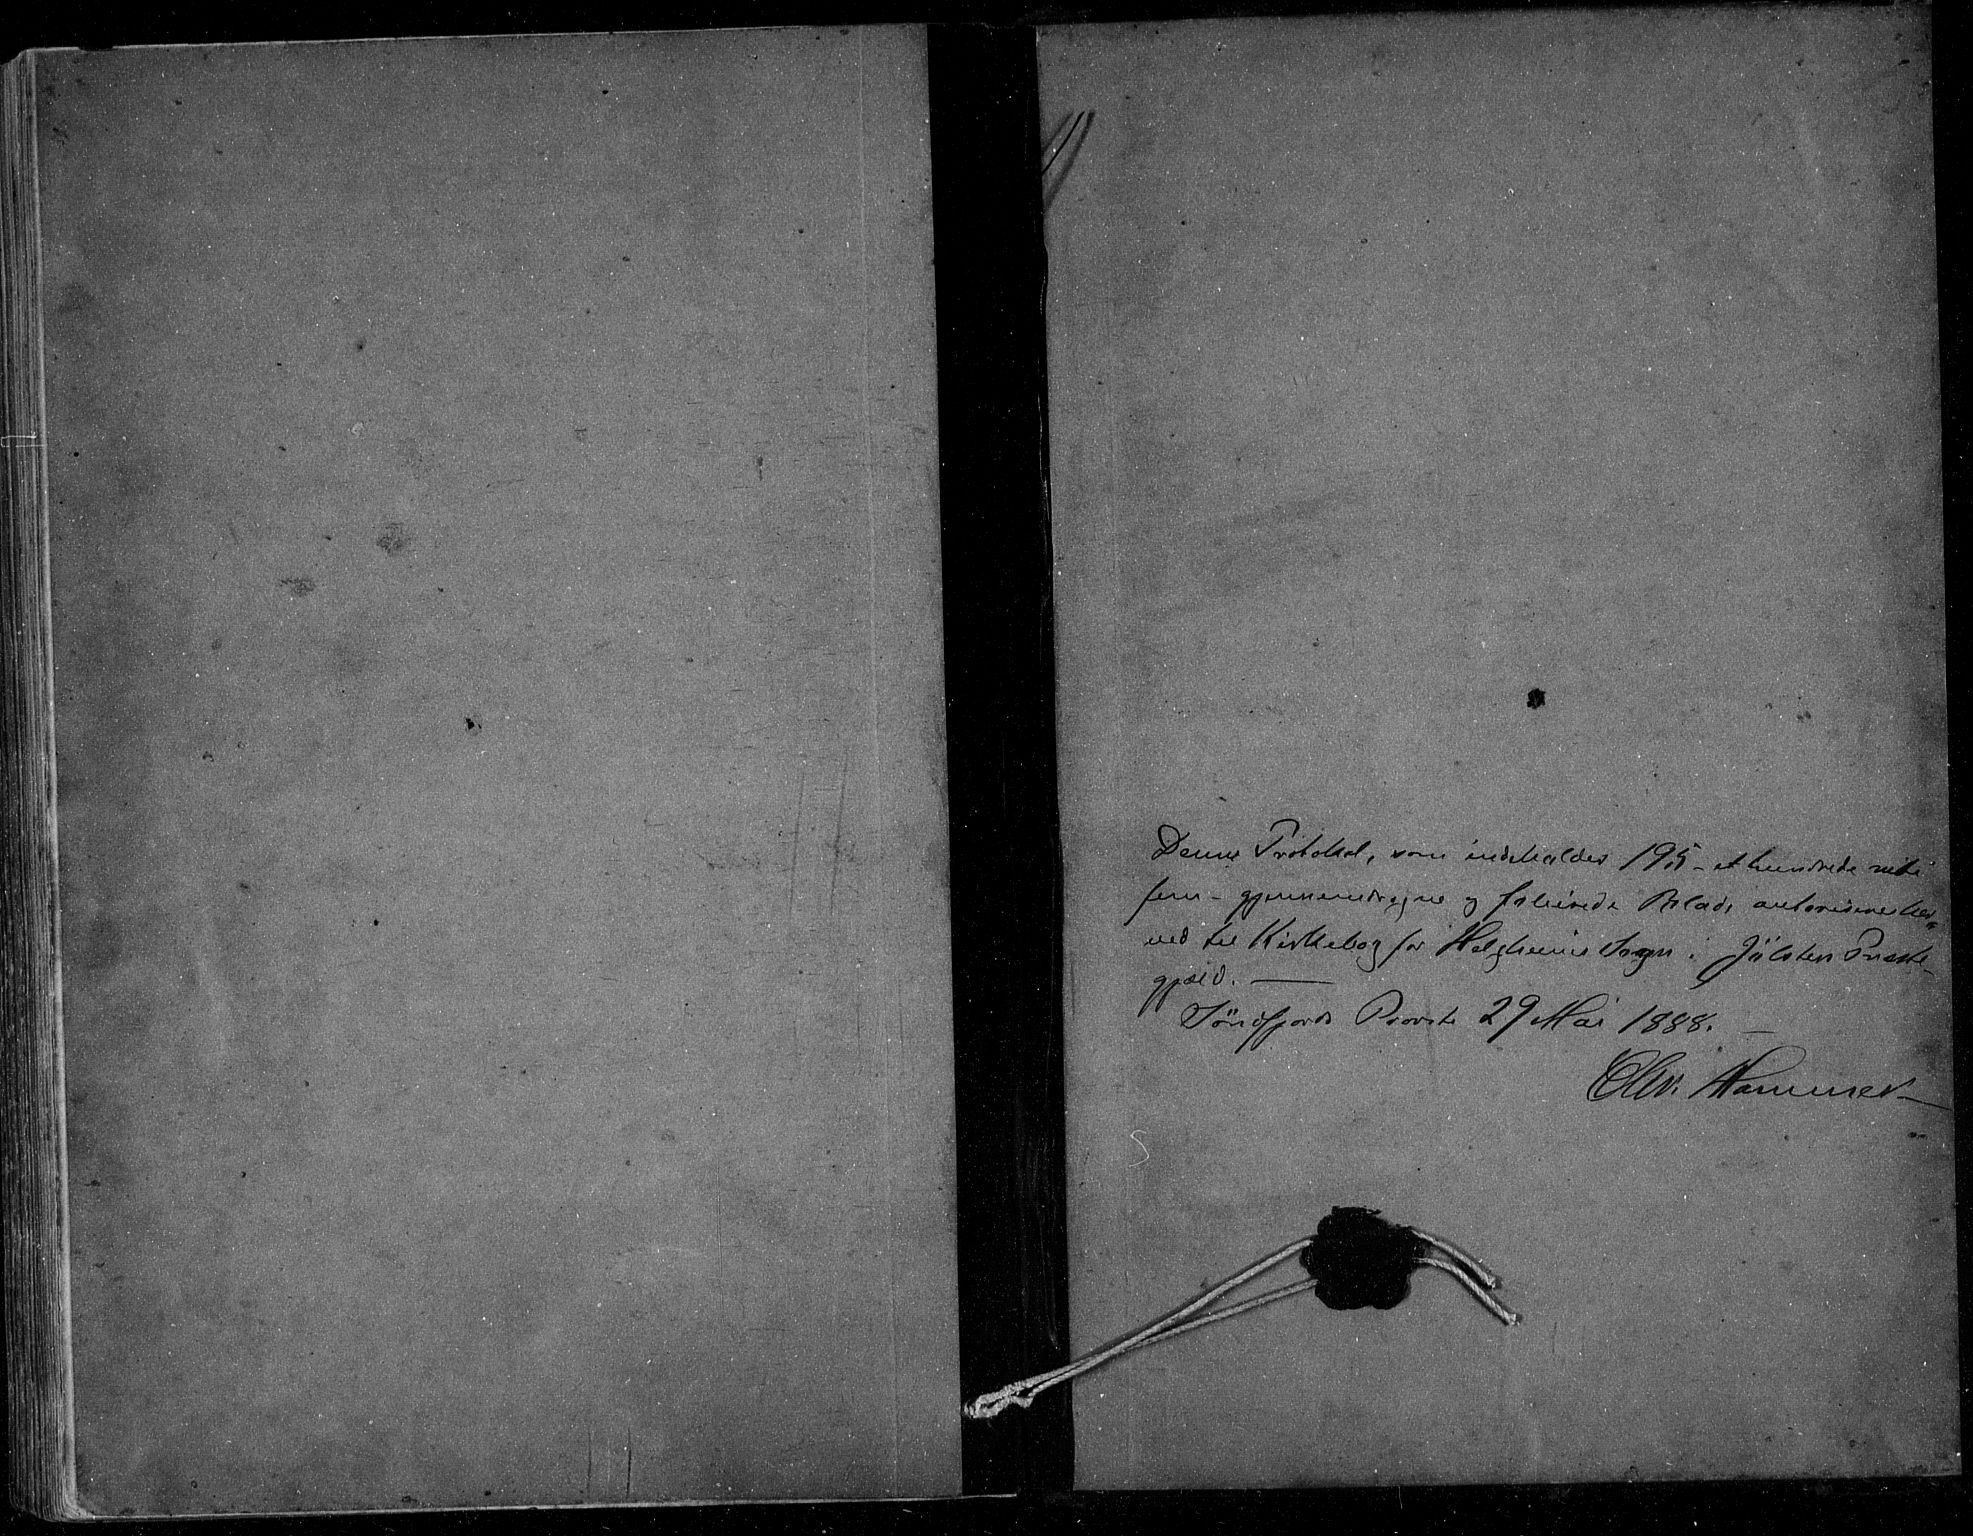 Denne Protokol, som indeholder 195 - et hundrede niti
fem - gjennemdragne og folierede Blade autoriseres her=
ved til Kirkebog for Helgheims Sogn i Jölsters Præste-
gjæld. —
Söndfjords Provsti 29 Mai 1888. —
Hammer